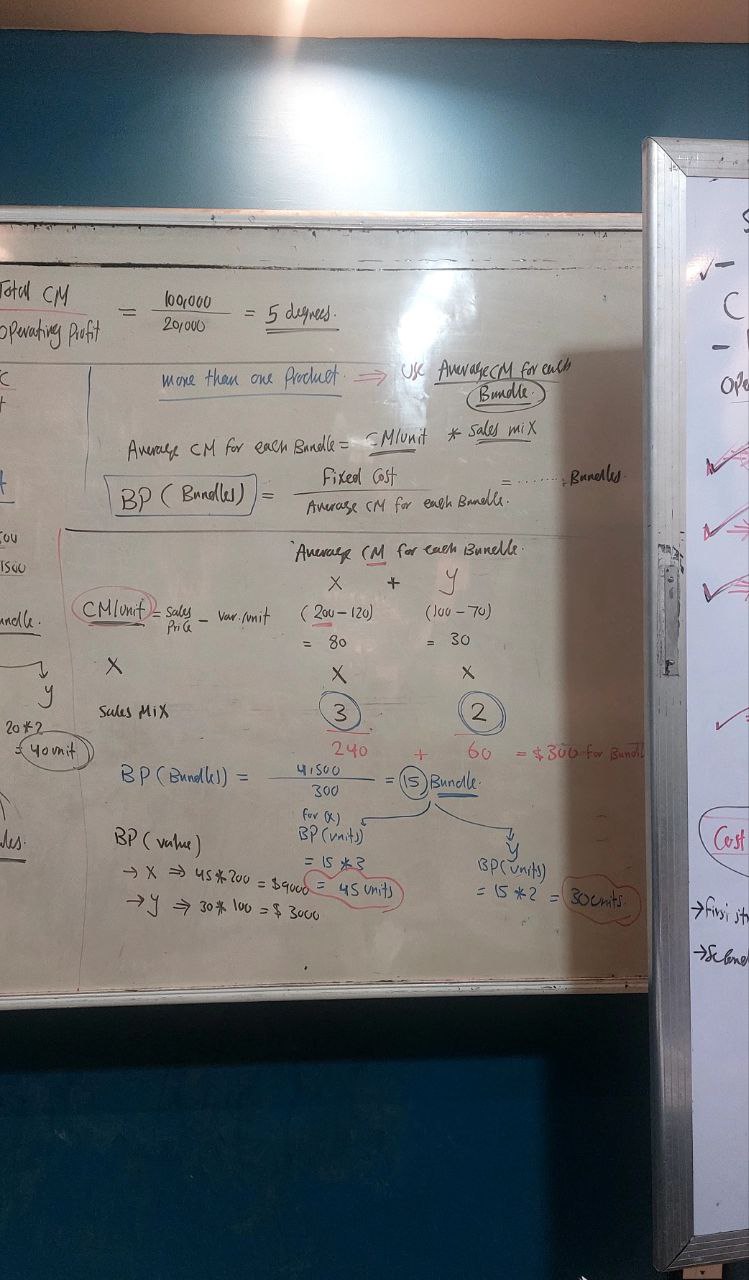 Total CM
Operating Profit
= 100,000 / 20,000 = 5 degrees.
more than one Product. ⇒ Use Average CM for each
Bundle.
Average CM for each Bundle = CM/unit * Sales mix
BP (Bundles) = Fixed Cost / Average CM for each Bundle. = ........ Bundles.
1500
Average CM for each Bundle.
X + y
CM/unit = Sales Price - Var./unit (200-120) (100-70)
= 80 = 30
X X X
Sales Mix 3 2
240 + 60 = $300 for Bundl
BP (Bundles) = 4,500 / 300 = 15 Bundle.
for (x)
BP (units)
= 15 * 3
= 45 units
y
BP (units)
= 15 * 2 = 30 units.
BP (value)
→ X ⇒ 45 * 200 = $9000
→ y ⇒ 30 * 100 = $3000
y
20*2
= 40 unit
S
C
Ope
Cost
→ First st